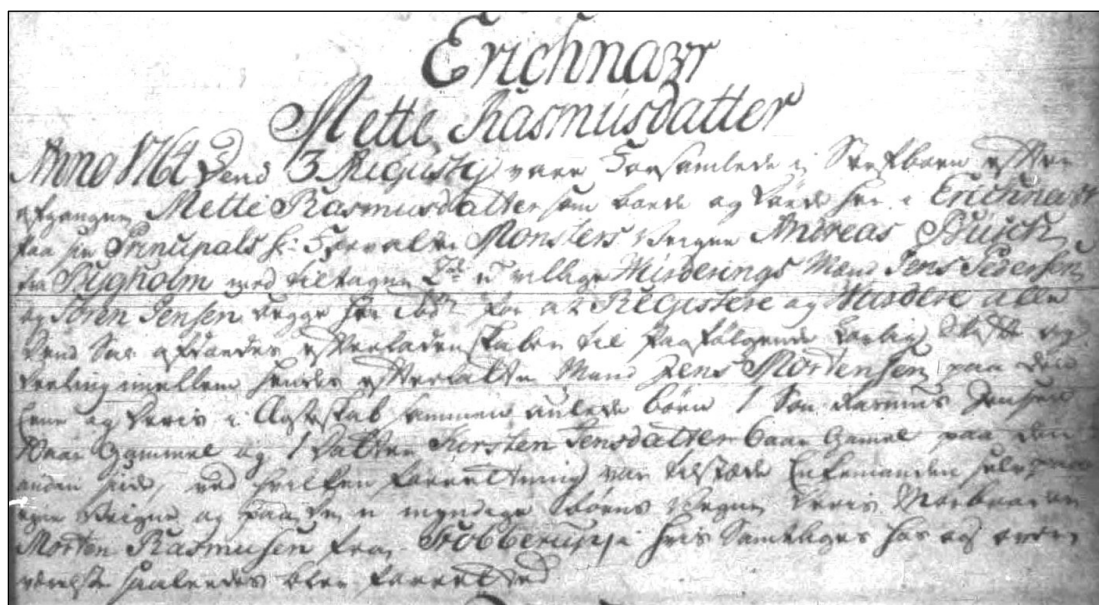 Erichnavr
Mette Rasmusdatter
Anno 1764 Dend 3 Augustij vare Forsamlede i Sterfboen efter
afgangne Mette Rasmusdatter som boede og døde her i Erichnavr
paa sin Principals Hr. Monsters Veigne Andreas Buück
fra Tyrholm med tiltagne 2de u villige Wurderings Mænd Jens Pedersen
og Sören Jensen begge her ibd for at Registere og Wurdere alle
dend Sal. afdødes efterladenskaber til paafölgende Lovlig Skifte og
deeling imellem hendes efterlatte Mand Jens Mortensen paa dend
eene og deris i Ægteskab sammen aulede börn 1 Sön Rasmus Jensen
aar Gammel og 1 datter Kirsten Jensdatter 6 aar Gamel paa den
anden side, ved hvilken forretning var tilstæde Enkemanden selv paa
egne Veigne og paa de u myndige börns Vegne deris Morbroder
Morten Rasmusen fra Trobberup i hvis Samtliges hos og
værelse saaledes blev forrettet